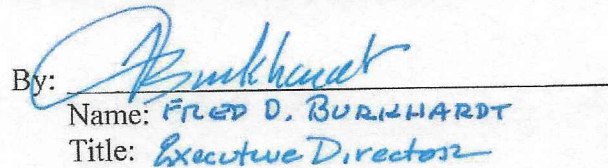 By: FBurkhardt
Name: FRED D. BURKHARDT
Title: Executive Director